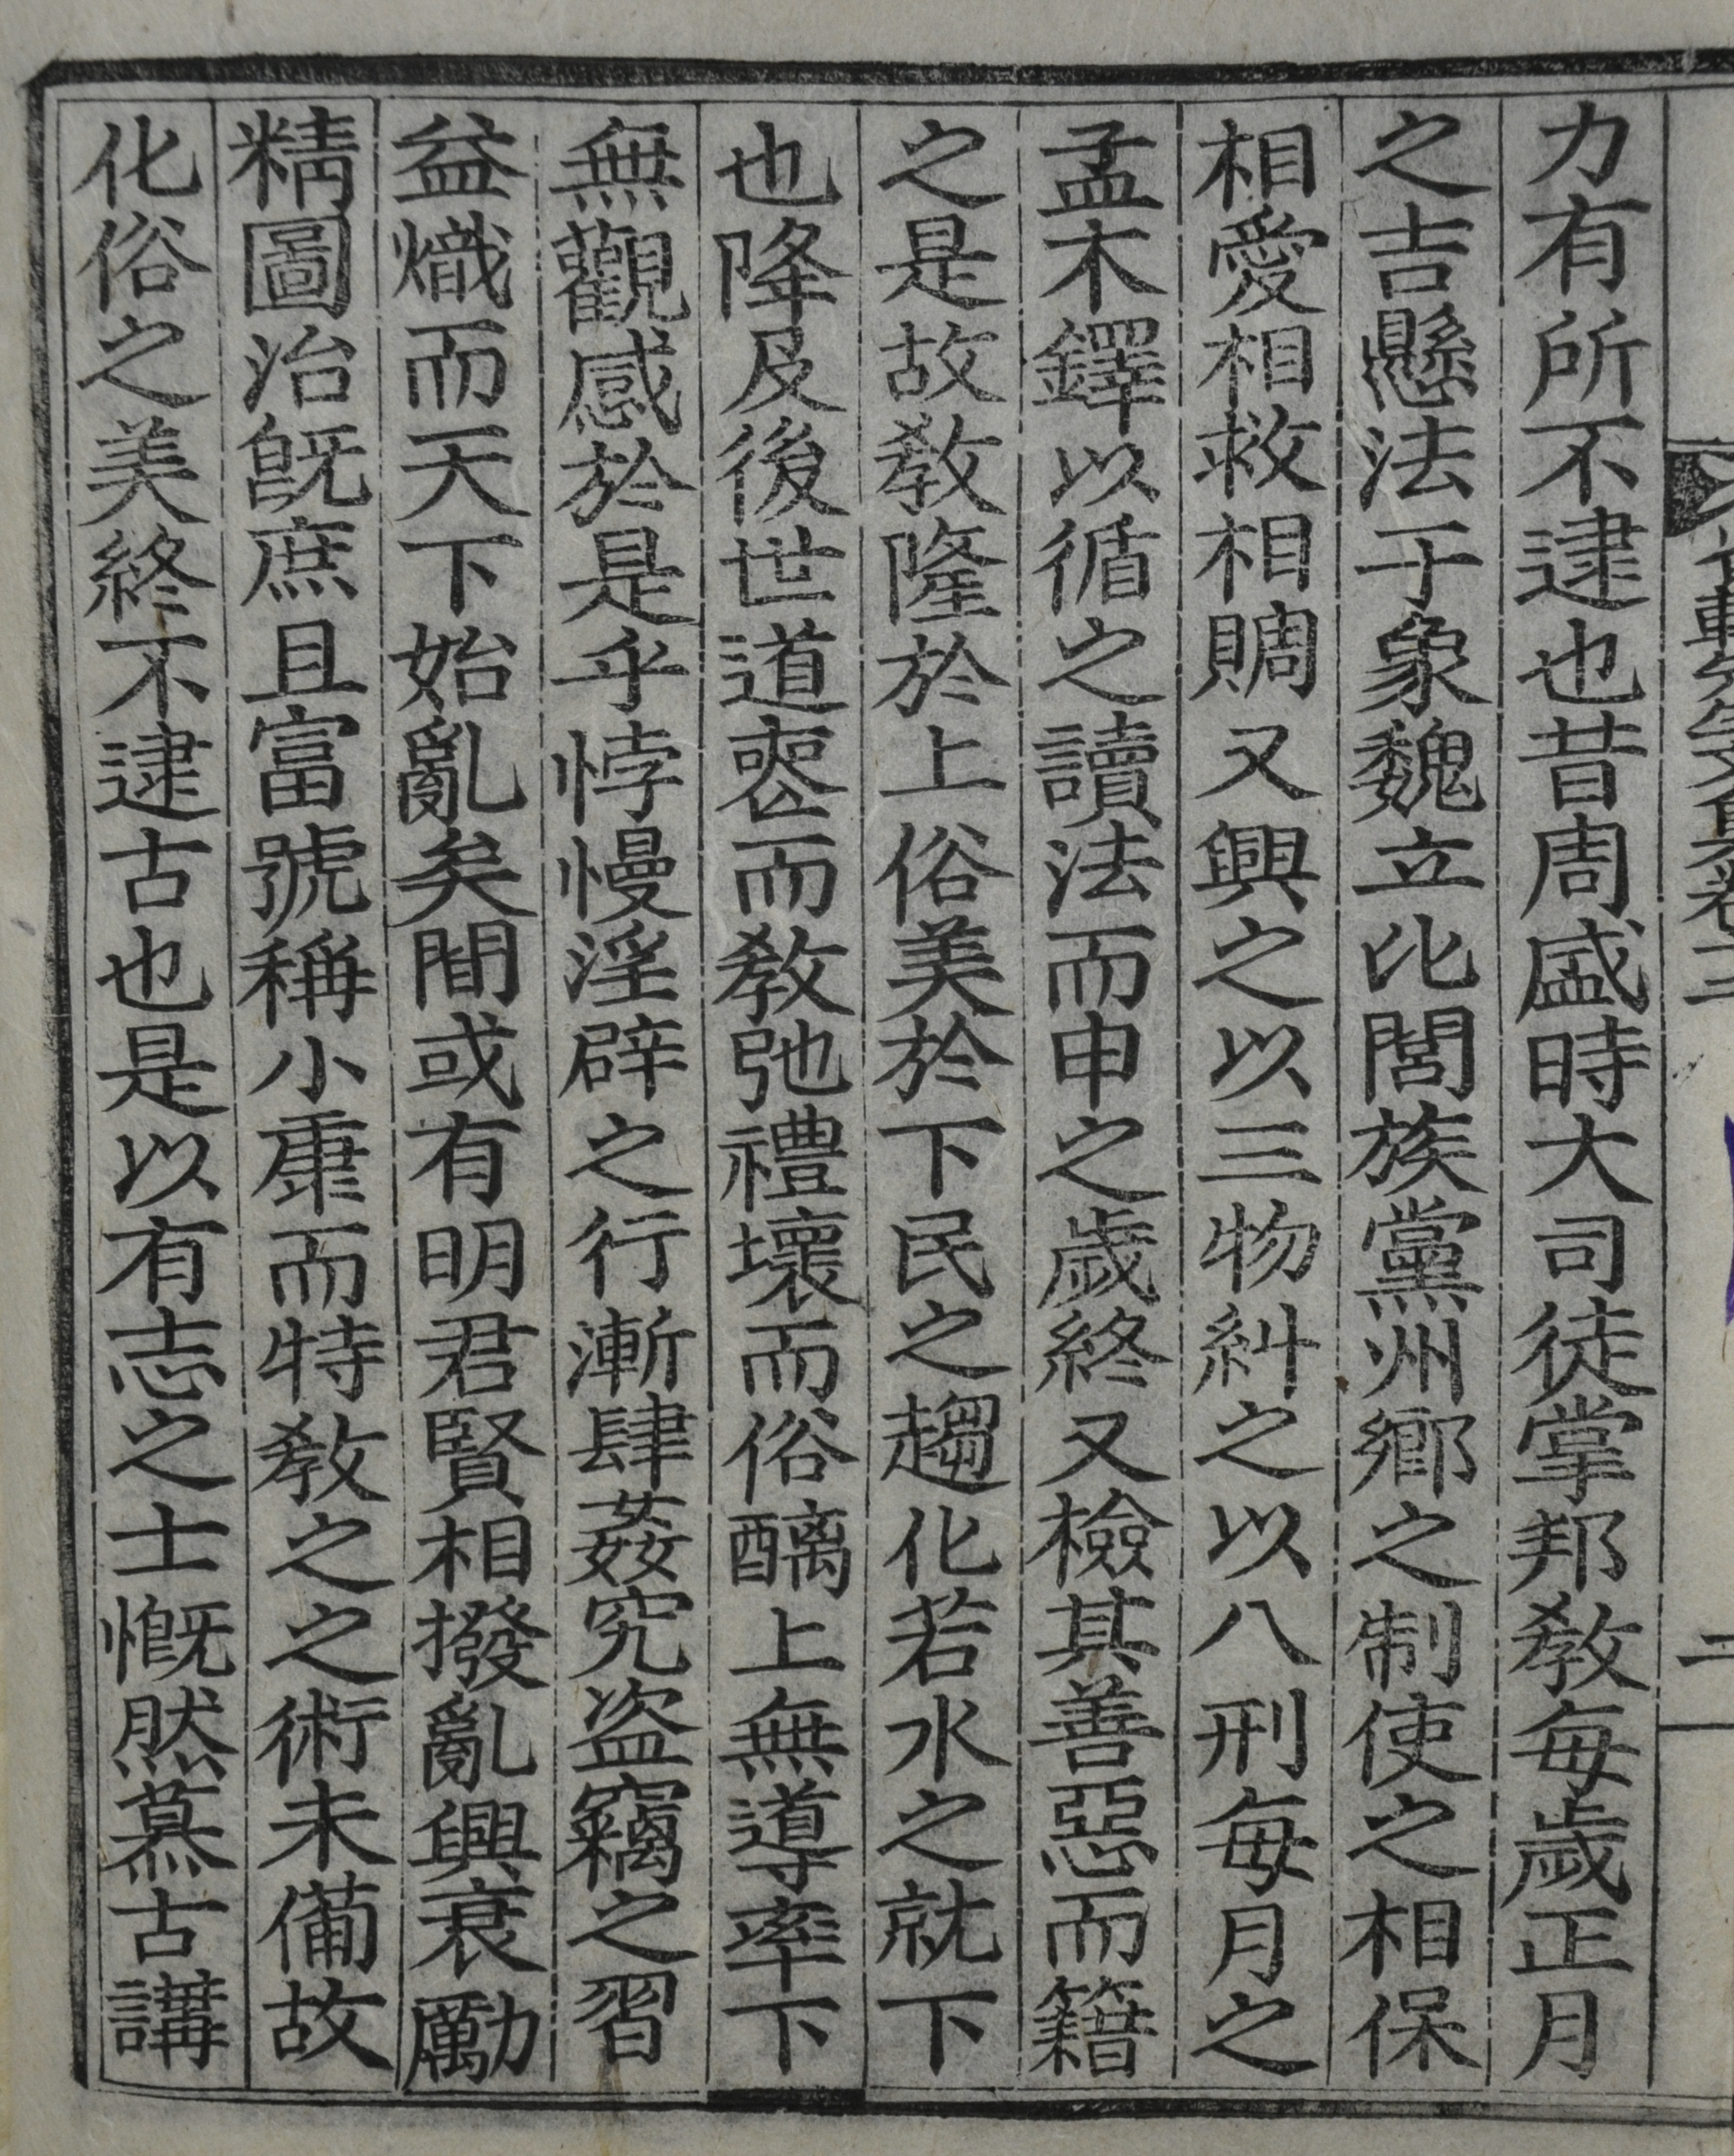 力有所不逮也昔周盛時大司徒掌邦敎每歲正月
之吉懸法于象魏立比閭族黨州鄕之制使之相保
相愛相救相賙又興之以三物糾之以八刑每月之
孟木鐸以循之讀法而申之歲終又檢其善惡而籍
之是故敎隆於上俗美於下民之趨化若水之就下
也降及後世道喪而敎弛禮壞而俗醨上無導率下
無觀感於是乎悖慢淫辟之行漸肆姦宄盜竊之習
益熾而天下始亂矣間或有明君賢相撥亂興衰勵
精圖治旣庶且富號稱小康而特敎之之術未備故
化俗之美終不逮古也是以有志之士慨然慕古講